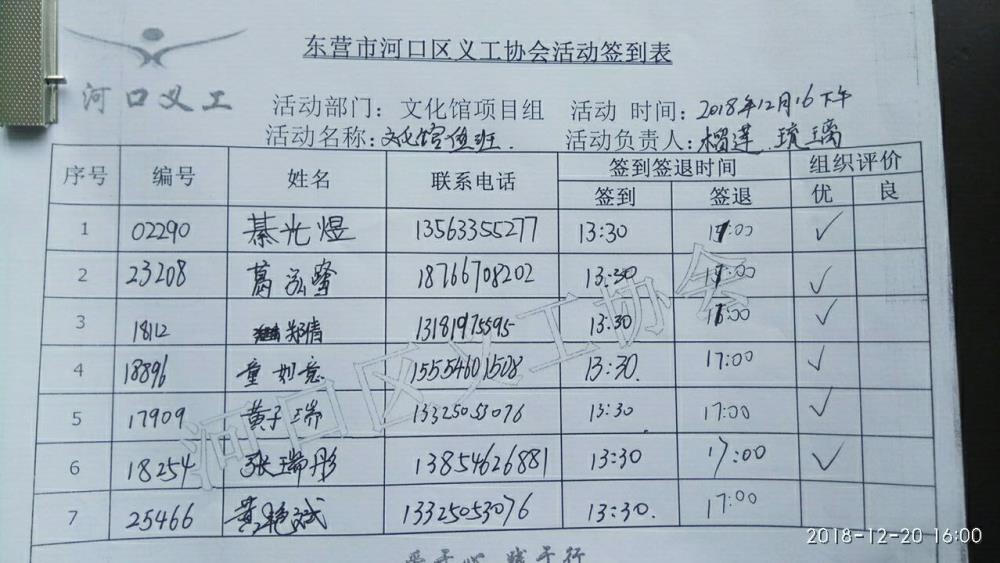 东营市河口区义工协会活动签到表
河口义工
活动部门： 文化馆项目组 活动 时间：2018年12月16下午
活动名称：文化馆值班. 活动负责人：榴莲.琉璃
序号 编号 姓名 联系电话 签到签退时间 组织评价
签到 签退 优 良
1 02290 綦光煜 13563355277 13:30 17:00 ✓
2 23208 葛 18766708202 13:30 17:00 ✓
3 18112 郑倩 13181975595 13:30 17:00 ✓
4 18896 童刻意 15554601508 13:30. 17:00 ✓
5 17909 黄子瑞 13325053076 13:30 17:00 ✓
6 18254 张瑞彤 13854626881 13:30 17:00 ✓
7 25466 黄艳斌 13325053076 13:30. 17:00
河口区义工协会
2018-12-20 16:00